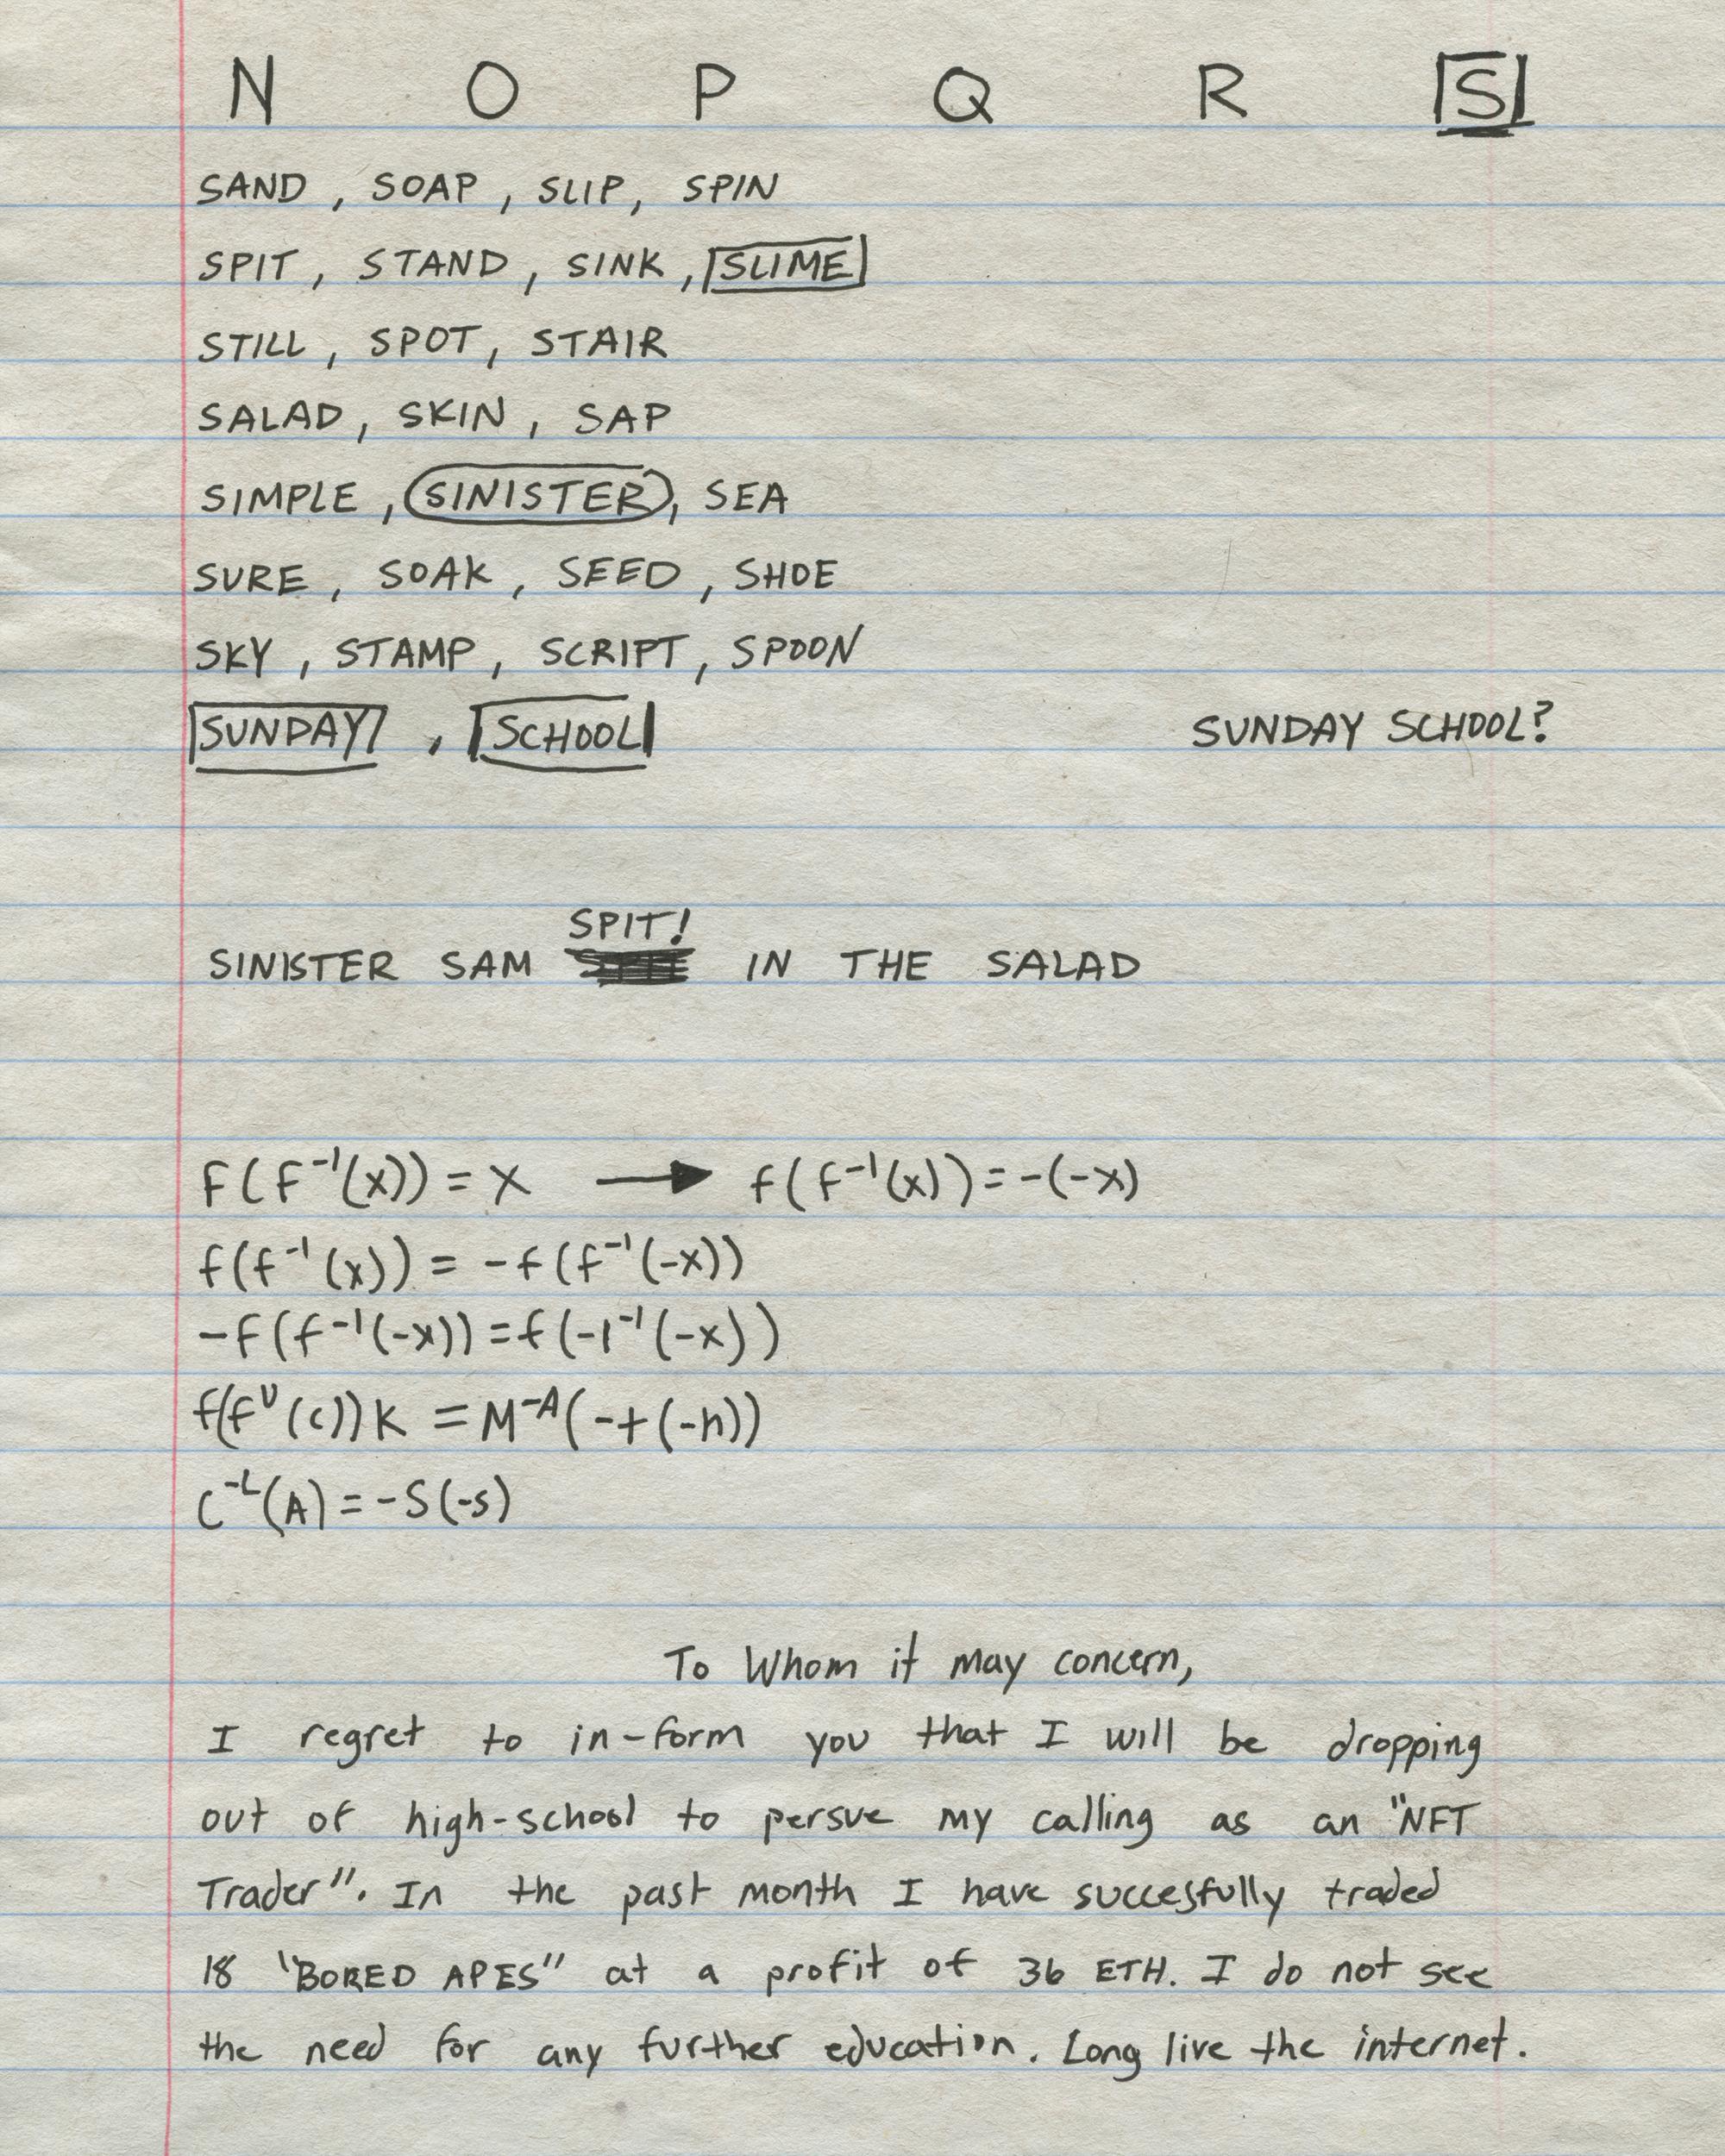 N O P Q R S
SAND, SOAP, SLIP, SPIN
SPIT, STAND, SINK, SLIME
STILL, SPOT, STAIR
SALAD, SKIN, SAP
SIMPLE, SINISTER, SEA
SURE, SOAK, SEED, SHOE
SKY, STAMP, SCRIPT, SPOON
SUNDAY, SCHOOL SUNDAY SCHOOL?
SPIT!
SINISTER SAM IN THE SALAD
F(F⁻¹(x)) = X → f(f⁻¹(x)) = -(-x)
f(f⁻¹(x)) = -f(f⁻¹(-x))
-f(f⁻¹(-x)) = f(-1⁻¹(-x))
f(fᵁ(c))K = M⁻ᴬ(-+(-n))
C⁻ᴸ(A) = -S(-s)
To Whom it may concern,
I regret to in-form you that I will be dropping
out of high-school to persue my calling as an "NFT
Trader". In the past month I have succesfully traded
18 "BORED APES" at a profit of 36 ETH. I do not see
the need for any further education. Long live the internet.